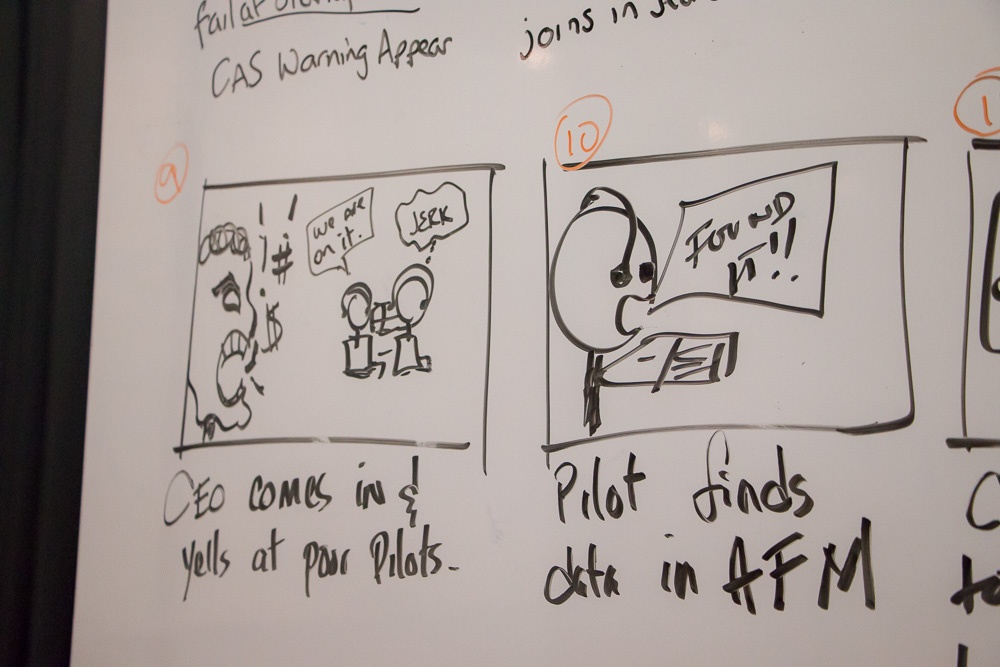 fail at
CAS Warning Appear
joins in
9
! !
! #
! $
we are
on it.
JERK
CEO comes in &
yells at poor Pilots.
10
FOUND
IT!!
Pilot finds
data in AFM
1